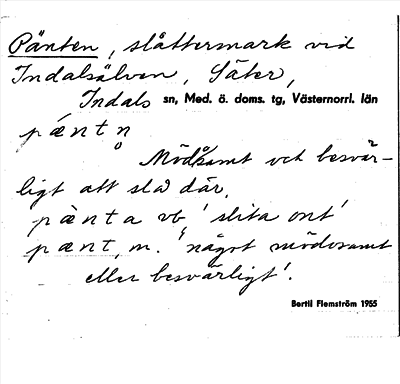 Pänten, slåttermark vid
Indalsälven, Säter,
Indals sn, Med. ö. doms. tg, Västernorrl. län
pæ̀ntn̥
Mödosamt och besvär-
ligt att slå där.
pæ̀nta vb 'slita ont'
pænt, m. 'något mödosamt
eller besvärligt'.
Bertil Flemström 1955